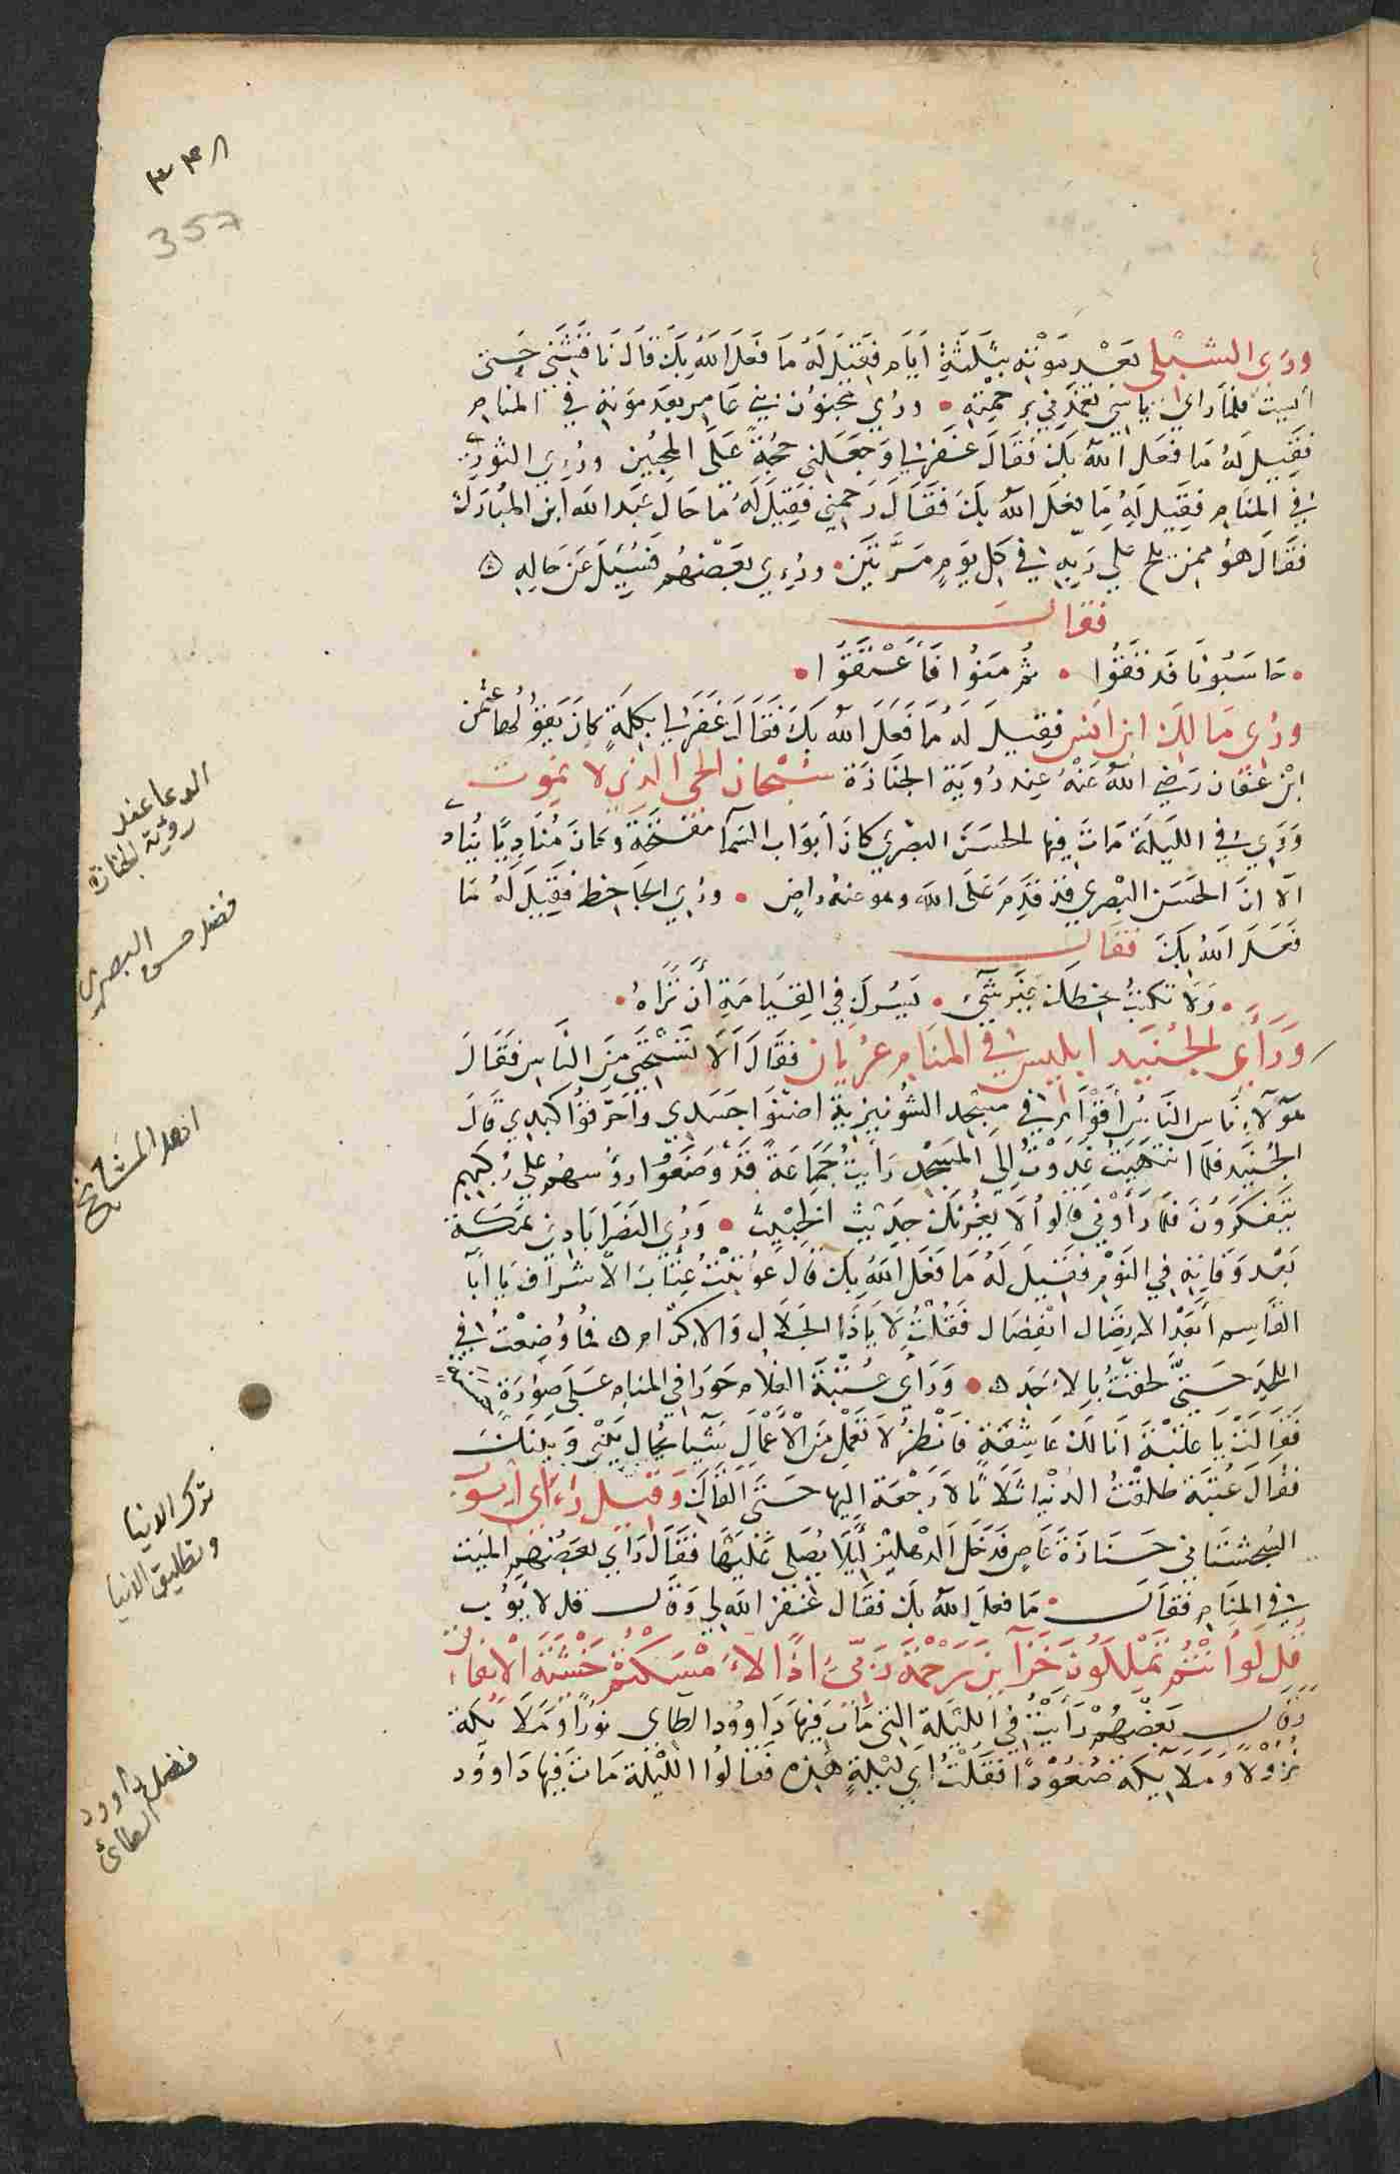 ٣٣٨
357
ورؤي الشبلي بعد موته بثلثة ايام فقيل له ما فعل الله بك قال ناقشني حتى
ايست فلما راي ياسي تغمدني برحمته ورؤي مجنون بني عامر بعد موته في المنام
فقيل له ما فعل الله بك فقال غفر لي وجعلني حجة على المحبين ورؤي الثوري
في المنام فقيل له ما فعل الله بك فقال رحمني فقيل له ما حال عبد الله ابن المبارك
فقال هو ممن يلج علي ربه في كل يوم مرتين ورؤي بعضهم فسئل عن حاله
فقال
حاسبونا فدققوا ثم منوا فأعتقوا
ورؤي مالك ابن انس فقيل له ما فعل الله بك فقال غفر لي بكلمة كان يقولها عثمن
ابن عفان رضي الله عنه عند رؤية الجنازة سبحان الحي الذي لا يموت
ورؤي في الليلة مات فيها الحسن البصري كان ابواب السما مفتحة وكان مناديا يناد
الا ان الحسن البصري قد قدم على الله وهو عنه راض ورؤي الجاحظ فقيل له ما
فعل الله بك فقال
ولا تكتب بخطك غير شيء يسرك في القيامة أن تراه
ورأى الجنيد ابليس في المنام عريان فقال ألا تستحي من الناس فقال
هولاء ناس الناس أقوام في مسجد الشونيزية اضنوا جسدي وأحرقوا كبدي قال
الجنيد فلما انتبهت غدوت إلى المسجد رأيت جماعة قد وضعوا رؤسهم على ركبهم
يتفكرون فلما رأوني قالوا لا يغرنك حديث الخبيث ورؤي النصراباذي بمكة
بعد وفاته في النوم فقيل له ما فعل الله بك قال عوتبت عتاب الاشراف يا ابا
القاسم أبعد الاتصال انفصال فقلت لا يا ذا الجلال والاكرام فما وضعت في
اللحد حتى لحقت بالاحد ورأى عتبة الغلام حورا في المنام على صورة حسنة
فقالت يا عتبة انا لك عاشقة فانظر لا تعمل من الاعمال شيا يحال بيني وبينك
فقال عتبة طلقت الدنيا ثلاثا لا رجعة اليها حتى القاك وقيل رأى أيوب
السجستاني جنازة عاص فدخل الدهليز ليلا يصلى عليها فقال رأى بعضهم الميت
في المنام فقال ما فعل الله بك فقال غفر الله لي وقال قل لأيوب
قل لو أنتم تملكون خزآئن رحمة ربي اذا لأمسكتم خشية الانفاق
وقال بعضهم رأيت في الليلة التى مات فيها داوود الطاى نورا وملائكة
نزولا وملآئكة صعودا فقلت أي ليلة هذه فقالوا الليلة مات فيها داوود
الدعا عند
رؤية الجنازة
فضل حسن البصري
ازهد المشايخ
ترك الدنيا
وتطليق الدنيا
فضل داوود
الطائي